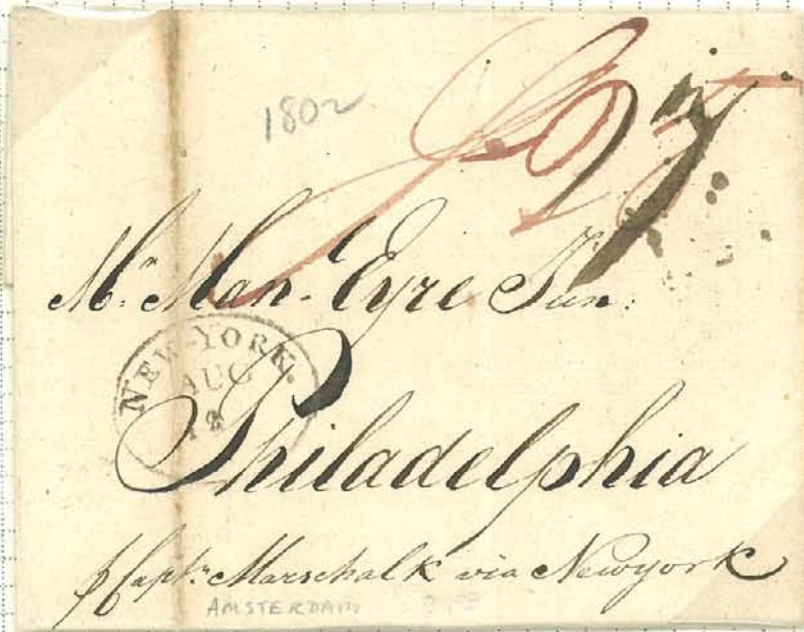 1802
27
Mr. Man. Eyre Jun:
NEW-YORK.
AUG
Philadelphia
p Captn. Marschalk via Newyork
AMSTERDAM